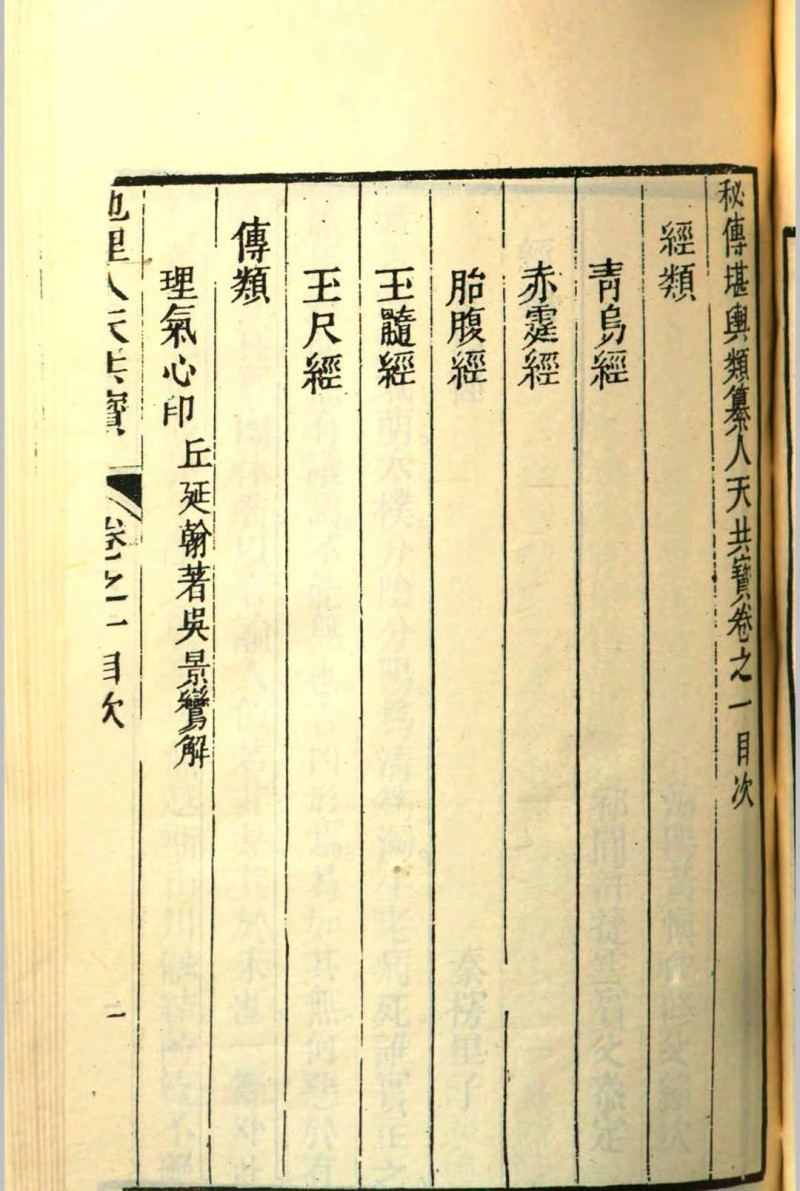 秘傳堪輿類纂人天共寳卷之一目次
經類
青烏經
赤霆經
胎腹經
玉髓經
玉尺經
傳類
理氣心印 丘延翰著吳景鸞解
地理人天共寳 卷之一 目次 一